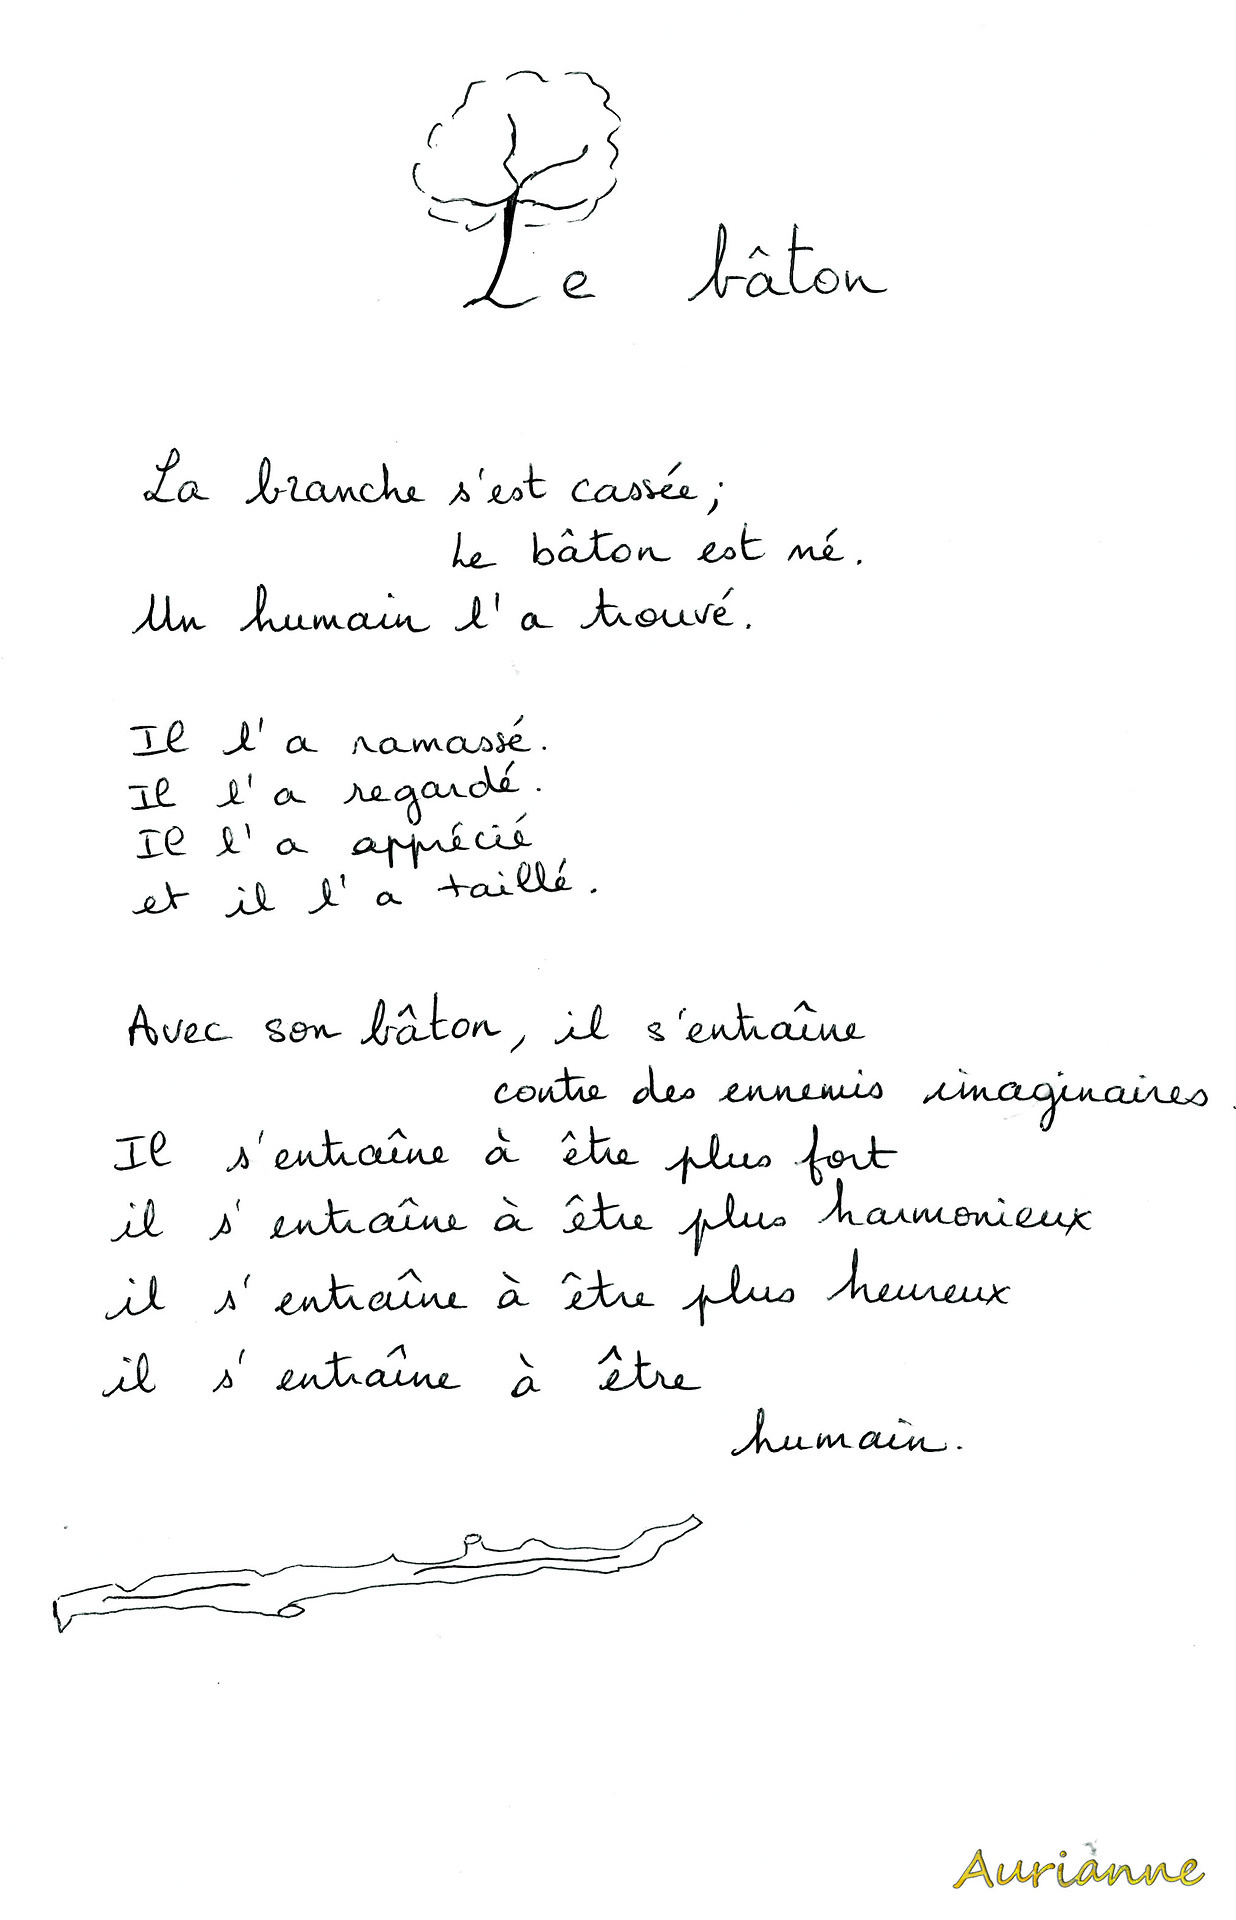 Le bâton
La branche s'est cassée;
Le bâton est né.
Un humain l'a trouvé.
Il l'a ramassé.
Il l'a regardé.
Il l'a apprécié
et il l'a taillé.
Avec son bâton, il s'entraîne
contre des ennemis imaginaires.
Il s'entraîne à être plus fort
il s'entraîne à être plus harmonieux
il s'entraîne à être plus heureux
il s'entraîne à être
humain.
Aurianne